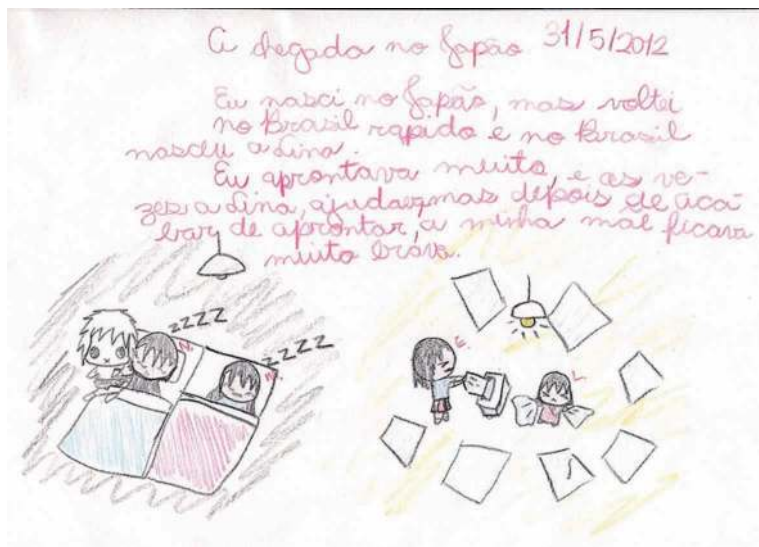 A chegada no Japão 31/5/2012
Eu nasci no Japão, mas voltei
no Brasil rapido e no Brasil
nasceu a Lina.
Eu aprontava muito, e as ve-
zes a Lina, ajudava, mas depois de aca-
bar de aprontar, a minha mãe ficava
muito brava.
zzzz
zzzz
N.
M.
E.
L.